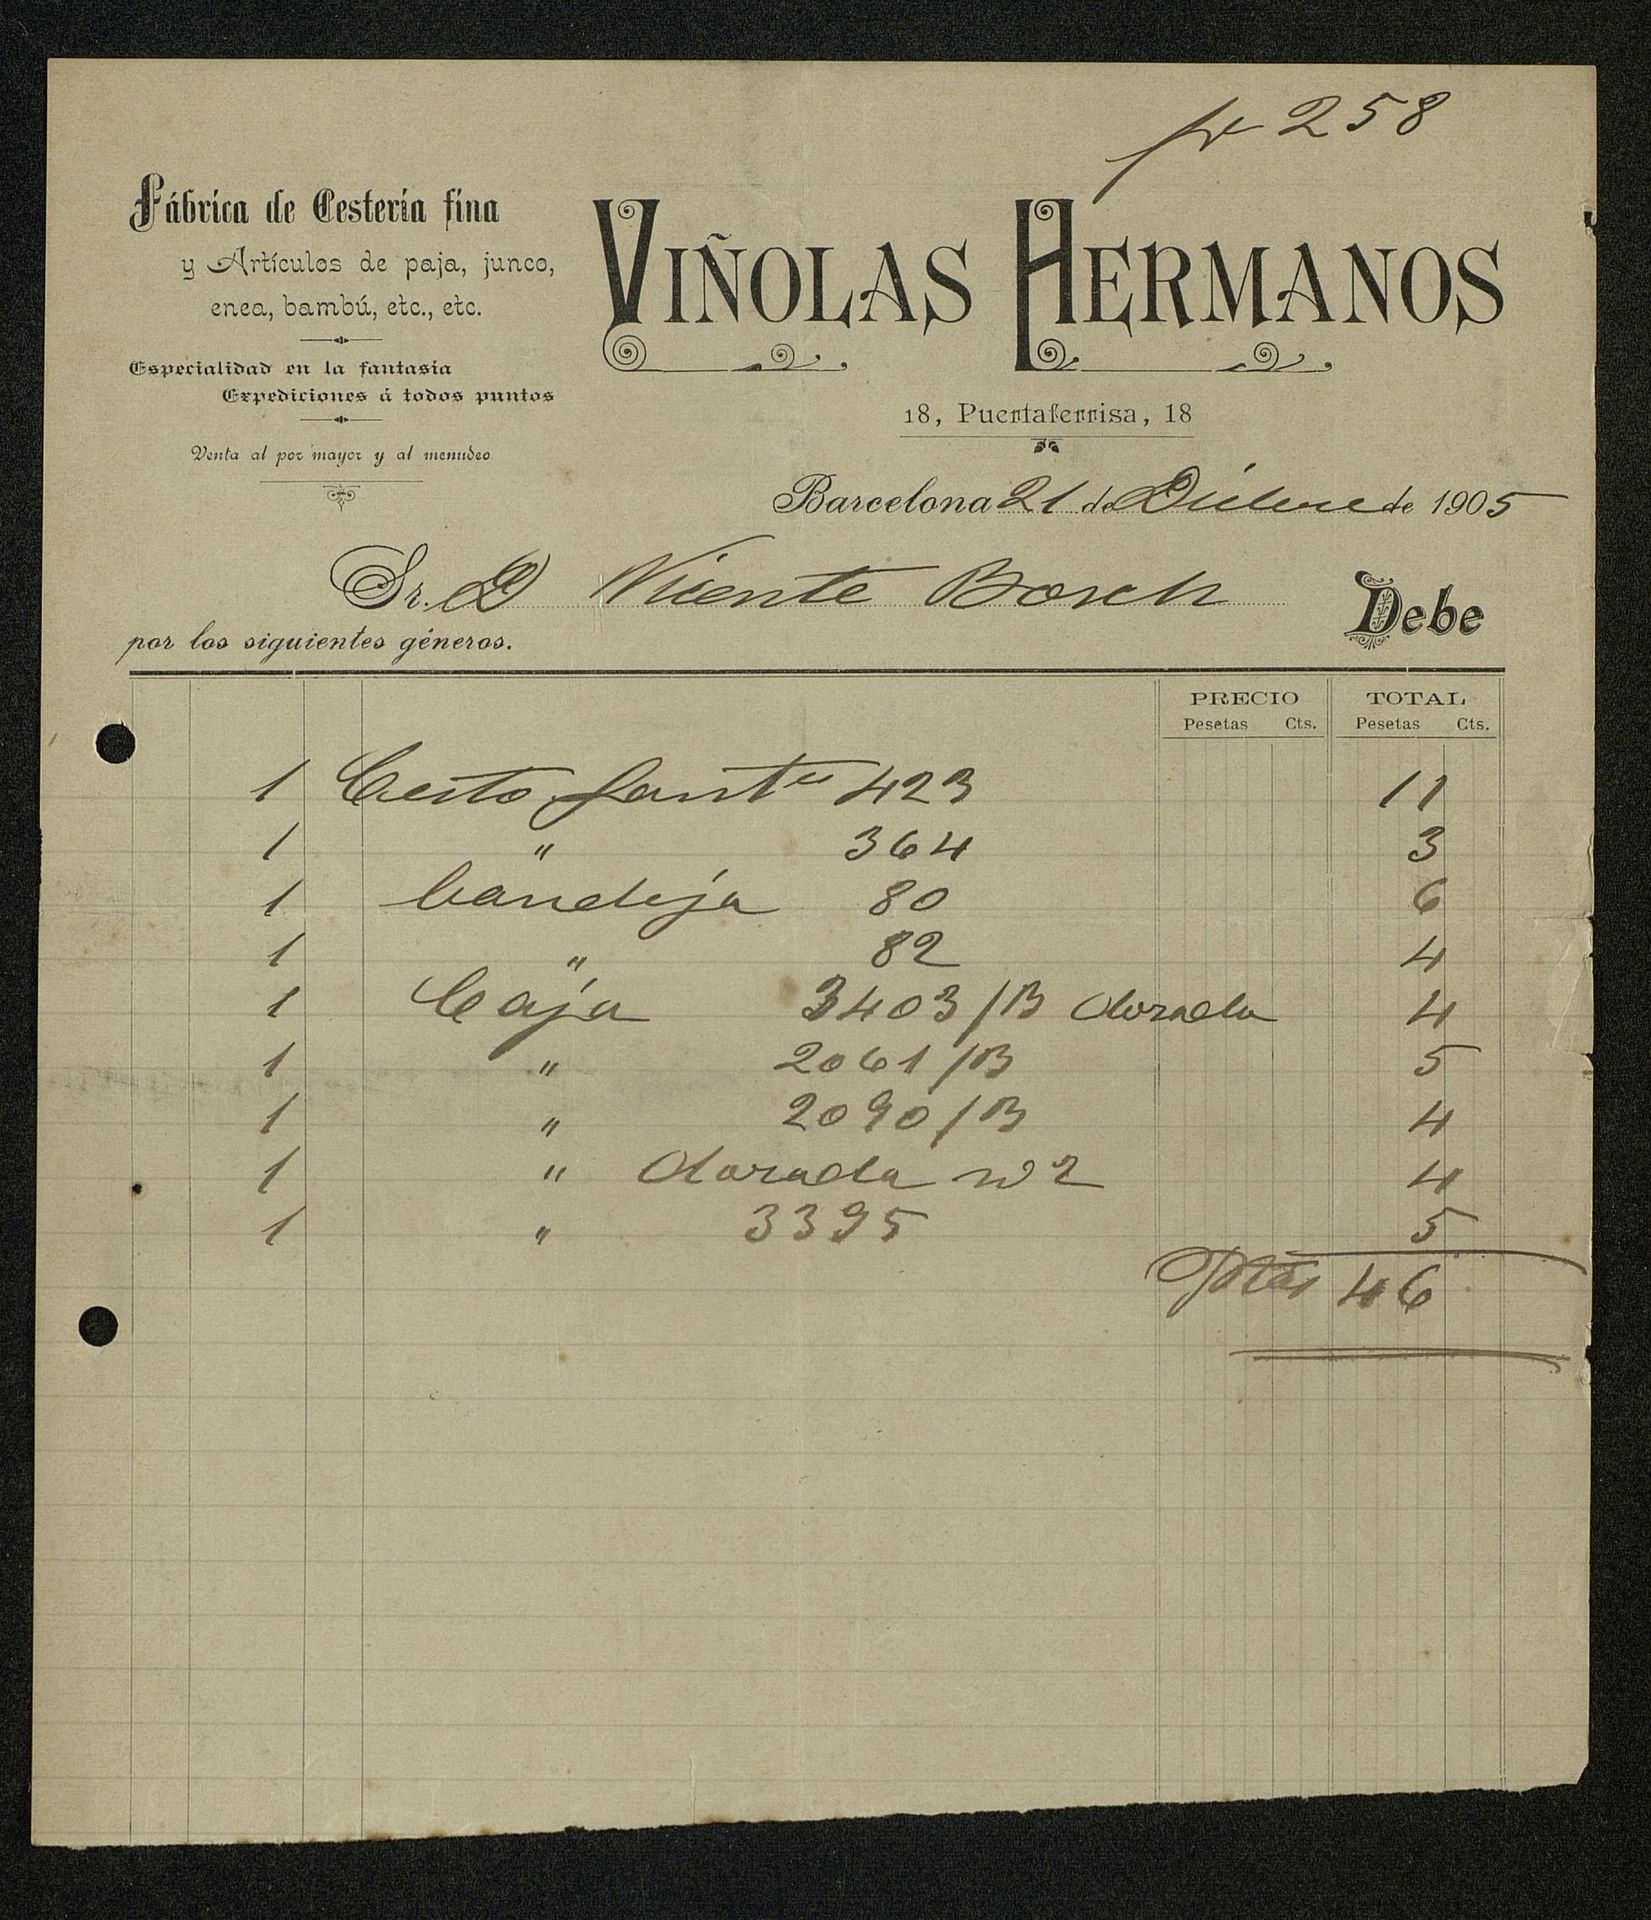 fo 258
Fábrica de Cestería fina
y Artículos de paja, junco,
enea, bambú, etc., etc.
Especialidad en la fantasía
Expediciones á todos puntos
Venta al por mayor y al menudeo
VIÑOLAS HERMANOS
18, Puertaferrisa, 18
Barcelona 21 de Dicbre de 1905
Sr. D Vicente Bosch Debe
por los siguientes géneros.
PRECIO TOTAL
Pesetas Cts. Pesetas Cts.
1 Cesto fanta 423 11
1 " 364 3
1 bandeja 80 6
1 " 82 4
1 Caja 3403/B dorada 4
1 " 2061/B 5
1 " 2090/B 4
1 " dorada nº 2 4
1 " 3395 5
Ptas 46